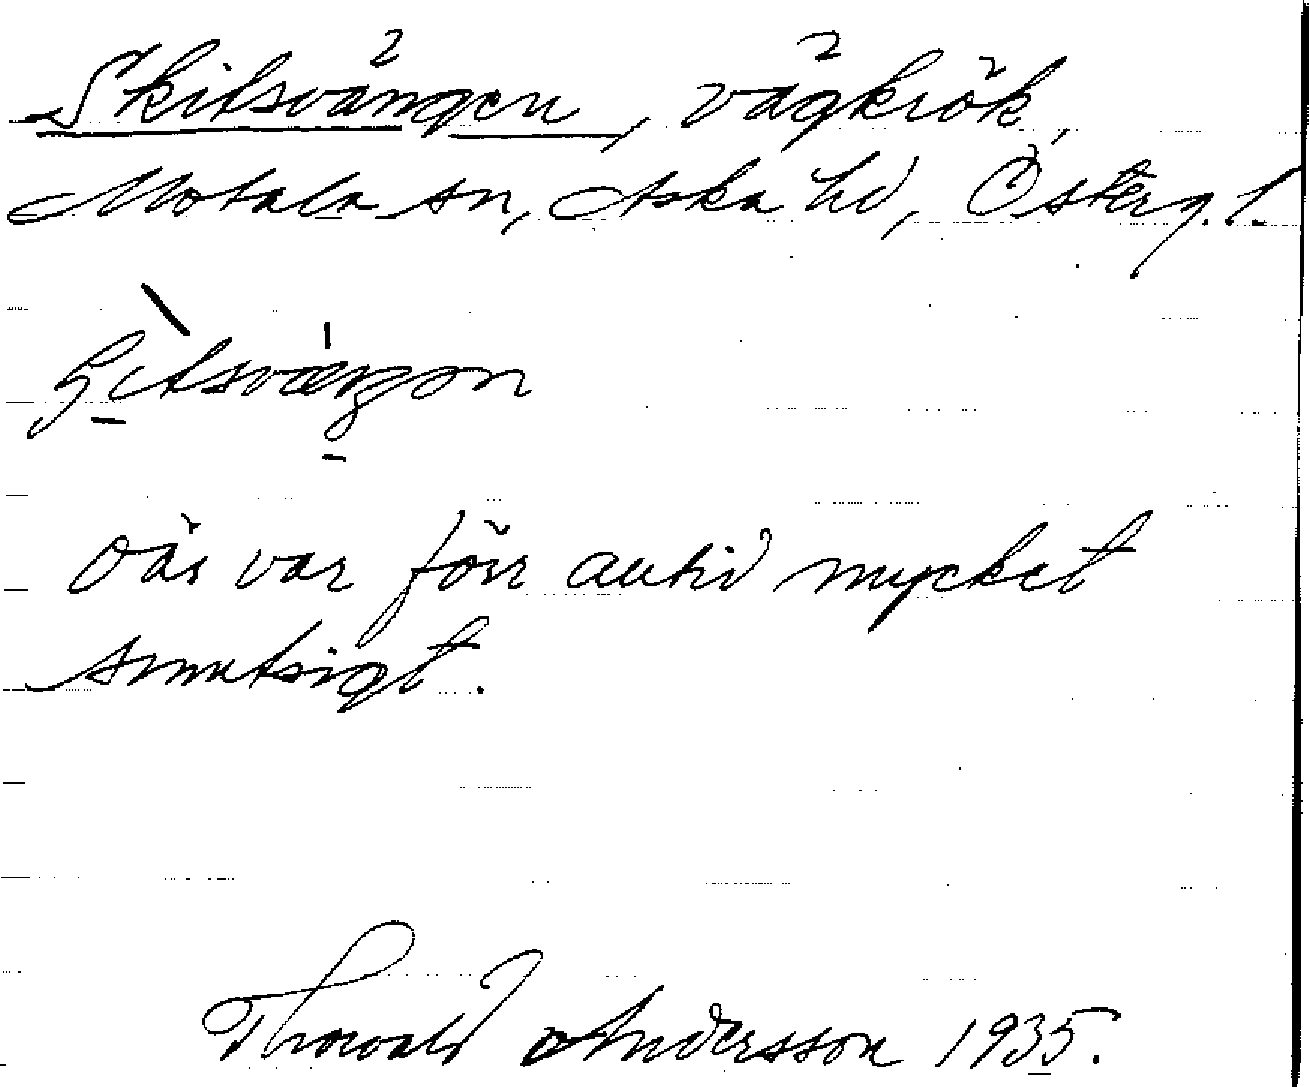 Skitsvängen, vägkrök,
Motala sn, Aska hd, Österg. l.
där var förr alltid mycket
smutsigt.
Thorvald Andersson 1935.